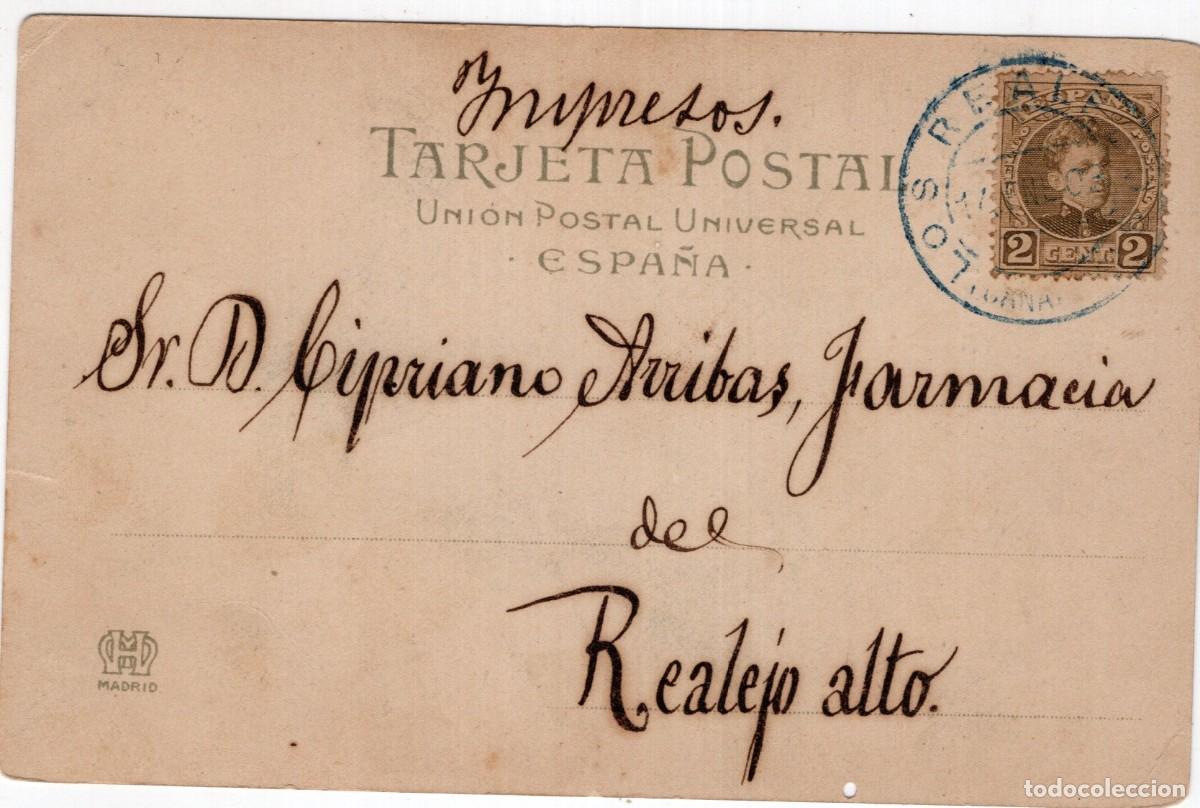 Impresos.
TARJETA POSTAL
UNIÓN POSTAL UNIVERSAL
· ESPAÑA ·
LOS REAL
ESPAÑA
2 CENT. 2
Sr. D. Cipriano Arribas, Farmacia
del
Realejo alto.
MADRID
todocoleccion